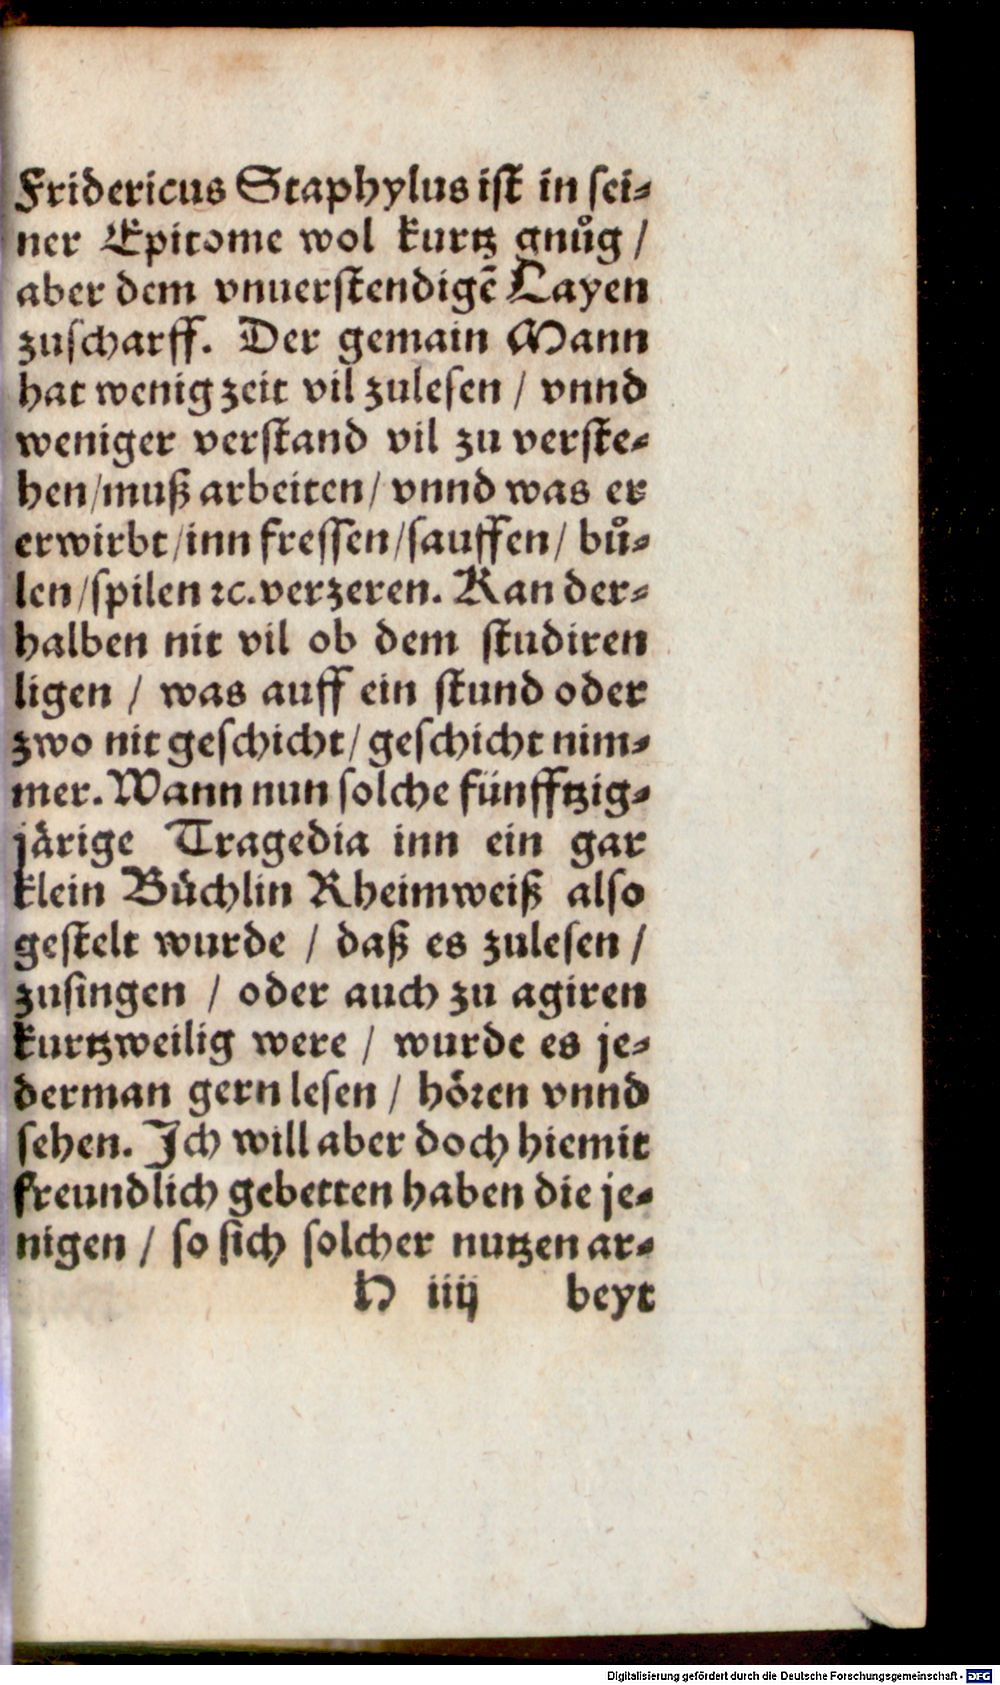 Fridericus Staphylus ist in sei⸗
ner Epitome wol kurtz gnůg /
aber dem vnuerstendigẽ Layen
zuscharff. Der gemain Mann
hat wenig zeit vil zulesen / vnnd
weniger verstand vil zu verste⸗
hen/muß arbeiten/ vnnd was er
erwirbt/inn fressen/sauffen/ bů⸗
len/spilen ꝛc. verzeren. Kan der⸗
halben nit vil ob dem studiren
ligen / was auff ein stund oder
zwo nit geschicht/ geschicht nim⸗
mer. Wann nun solche fünfftzig⸗
järige Tragedia inn ein gar
klein Büchlin Rheimweiß also
gestelt wurde / daß es zulesen /
zusingen / oder auch zu agiren
kurtzweilig were / wurde es je⸗
derman gern lesen / hören vnnd
sehen. Ich will aber doch hiemit
freundlich gebetten haben die je⸗
nigen / so sich solcher nutzen ar⸗
H iiij beyt
Digitalisierung gefördert durch die Deutsche Forschungsgemeinschaft - DFG